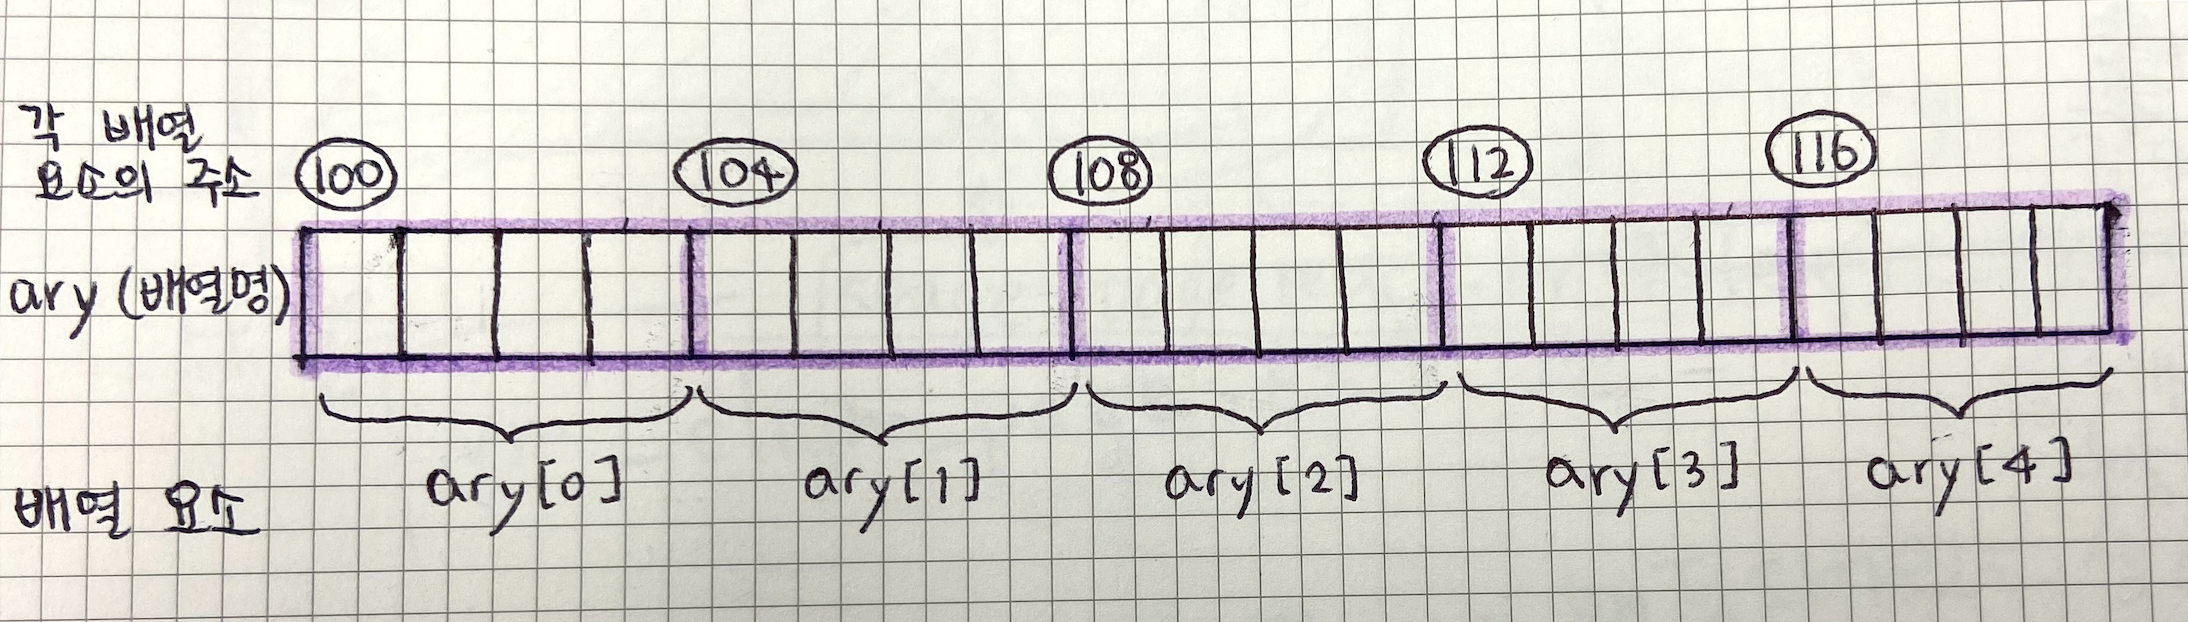 각 배열
요소의 주소 100 104 108 112 116
ary (배열명)
ary[0] ary[1] ary[2] ary[3] ary[4]
배열 요소